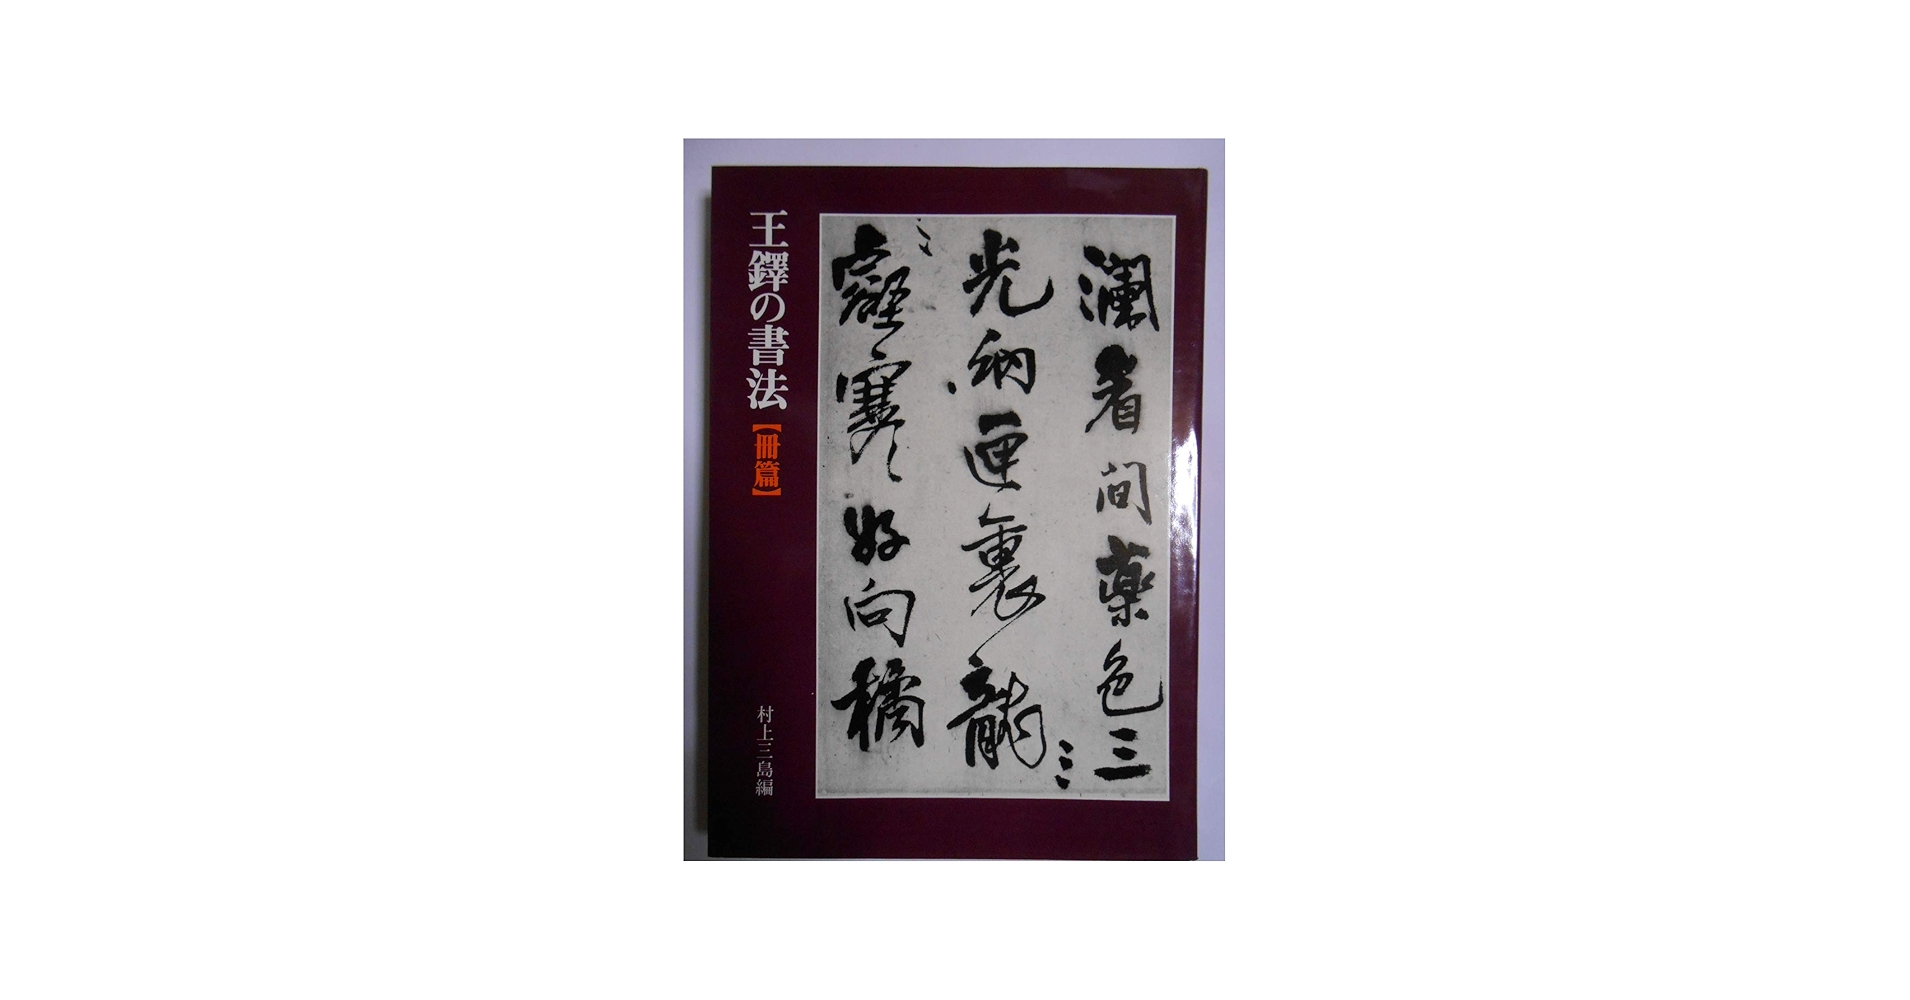 王鐸の書法
【冊篇】
村上三島編
瀾看間薬色三
光納匣裏龍
好向橘